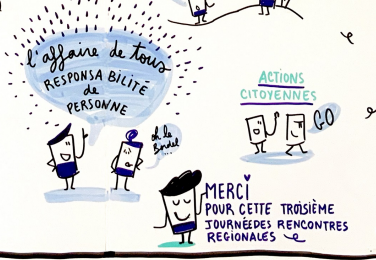 l'affaire de tous
RESPONSABILITÉ
de
PERSONNE
oh le
Bordel
...
ACTIONS
CITOYENNES
GO
MERCI
POUR CETTE TROISIÈME
JOURNÉE DES RENCONTRES
REGIONALES